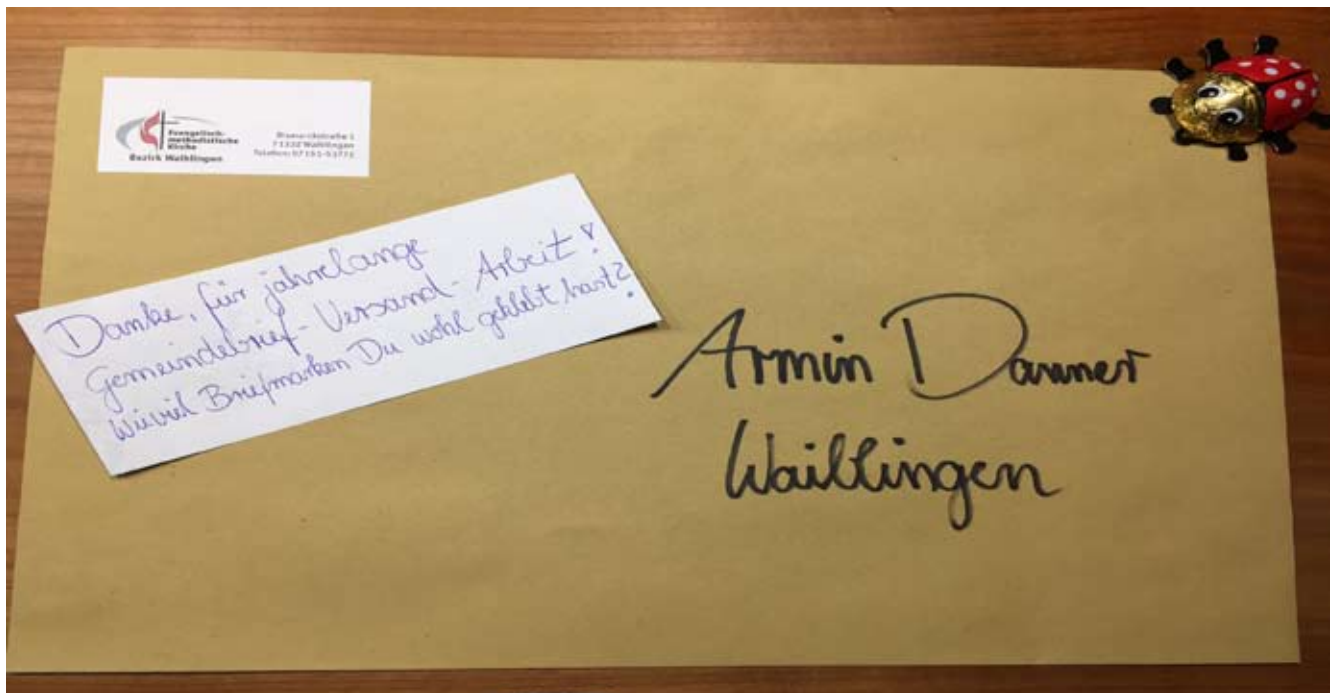 Evangelisch-
methodistische
Kirche
Bezirk Waiblingen
Bismarckstraße 1
71332 Waiblingen
Telefon: 07151-53773
Danke, für jahrelange
Gemeindebrief-Versand-Arbeit!
Wieviel Briefmarken Du wohl geklebt hast?
Armin Danner
Waiblingen